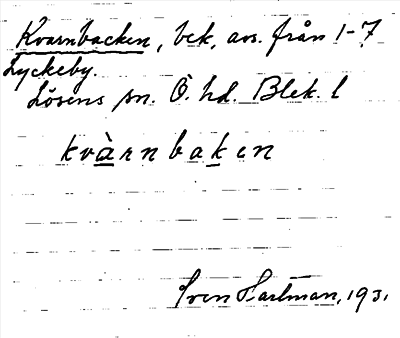 Kvarnbacken, bek, avs. från 1-7
Lyckeby.
Lösens sn. Ö. hd. Blek. l
kvàrnbaken
Sven Hartman, 193.